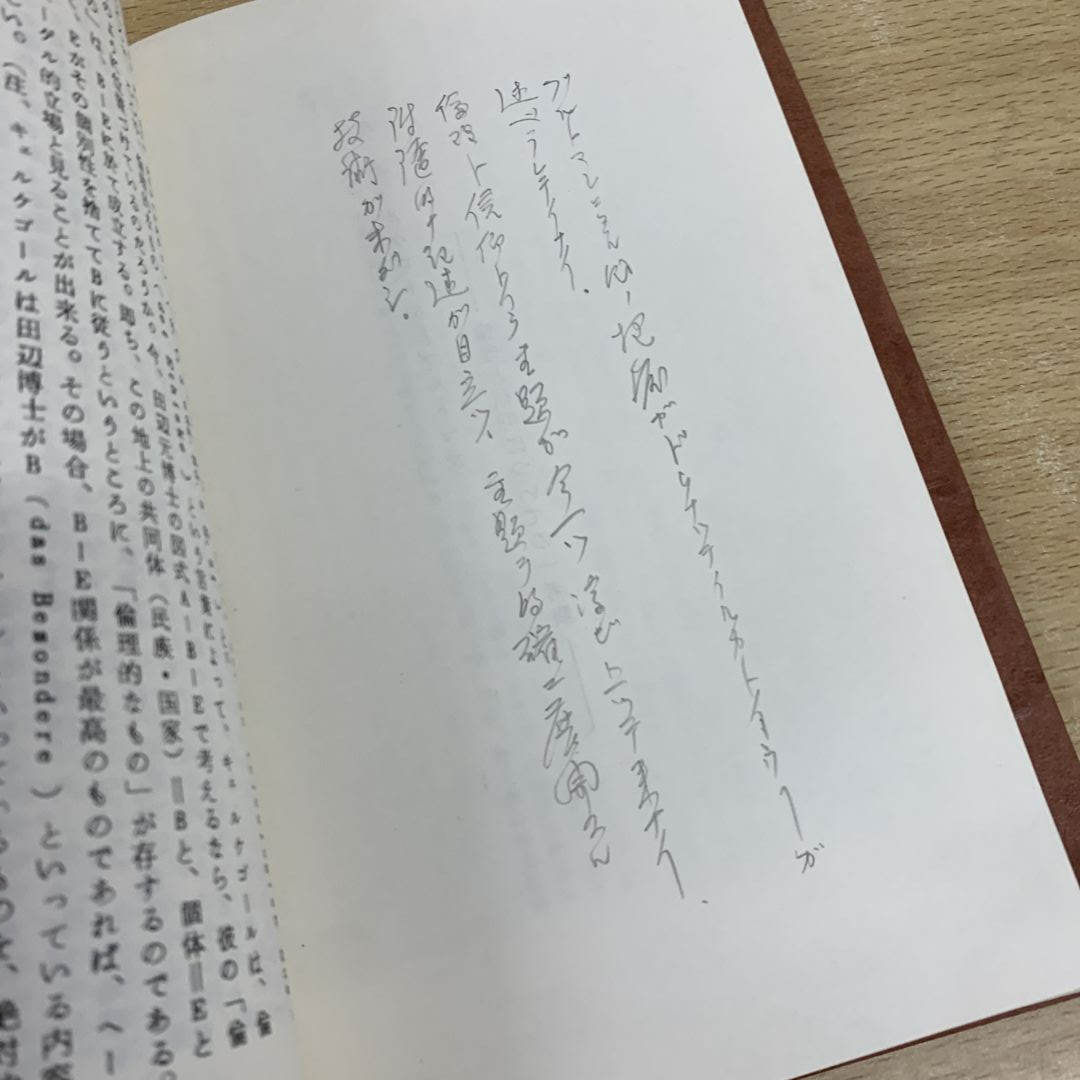 ブルトマンニ 把握ガドウナッテイルカトイウ ガ
述ベラレテイナイ．
倫理ト信仰トイウ主題ガ今一ツ浮ビ上ッテ来ナイ．
付随的ナ記述ガ目立ツ、主題ヲ的確ニ展開スル
技術ガ未ダシ。
という言葉によって、キェルケゴールは、倫
けているのだろうか。今、田辺元博士の図式A―B―Eで考えるなら、彼の「倫
は、B―Eに於て成立する。即ち、この地上の共同体（民族・国家）＝Bと、個体＝Eと
その個別性を捨ててBに従うというところに、「倫理的なもの」が存するのである。
ル的立場と見ることが出来る。その場合、B―E関係が最高のものであれば、ヘー
い。（注、キェルケゴールは田辺博士がB（das Besondere）といっている内容